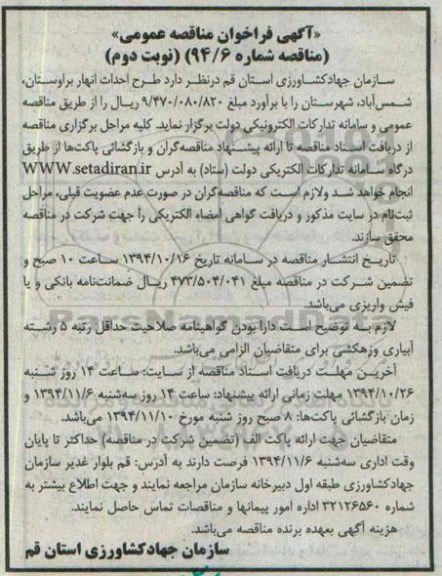 «آگهی فراخوان مناقصه عمومی»
(مناقصه شماره ۹۴/۶) (نوبت دوم)
سازمان جهادکشاورزی استان قم درنظر دارد طرح احداث انهار براوستان،
شمس‌آباد، شهرستان را با برآورد مبلغ ۹/۴۷۰/۰۸۰/۸۲۰ ریال را از طریق مناقصه
عمومی و سامانه تدارکات الکترونیکی دولت برگزار نماید. کلیه مراحل برگزاری مناقصه
از دریافت اسناد مناقصه تا ارائه پیشنهاد مناقصه‌گران و بازگشائی پاکت‌ها از طریق
درگاه سامانه تدارکات الکتریکی دولت (ستاد) به آدرس WWW.setadiran.ir
انجام خواهد شد ولازم است که مناقصه‌گران در صورت عدم عضویت قبلی، مراحل
ثبت‌نام در سایت مذکور و دریافت گواهی امضاء الکتریکی را جهت شرکت در مناقصه
محقق سازند.
تاریخ انتشار مناقصه در سامانه تاریخ ۱۳۹۴/۱۰/۱۶ ساعت ۱۰ صبح و
تضمین شرکت در مناقصه مبلغ ۴۷۳/۵۰۴/۰۴۱ ریال ضمانت‌نامه بانکی و یا
فیش واریزی می‌باشد.
لازم به توضیح است دارا بودن گواهینامه صلاحیت حداقل رتبه ۵ رشته
آبیاری وزهکشی برای متقاضیان الزامی می‌باشد.
آخرین مهلت دریافت اسناد مناقصه از سایت: ساعت ۱۴ روز شنبه
۱۳۹۴/۱۰/۲۶ مهلت زمانی ارائه پیشنهاد: ساعت ۱۴ روز سه‌شنبه ۱۳۹۴/۱۱/۶ و
زمان بازگشائی پاکت‌ها: ۸ صبح روز شنبه مورخ ۱۳۹۴/۱۱/۱۰ می‌باشد.
متقاضیان جهت ارائه پاکت الف (تضمین شرکت در مناقصه) حداکثر تا پایان
وقت اداری سه‌شنبه ۱۳۹۴/۱۱/۶ فرصت دارند به آدرس: قم بلوار غدیر سازمان
جهادکشاورزی طبقه اول دبیرخانه سازمان مراجعه نمایند و جهت اطلاع بیشتر به
شماره ۳۲۱۲۶۵۶۰ اداره امور پیمانها و مناقصات تماس حاصل نمایند.
هزینه آگهی بعهده برنده مناقصه می‌باشد.
سازمان جهادکشاورزی استان قم